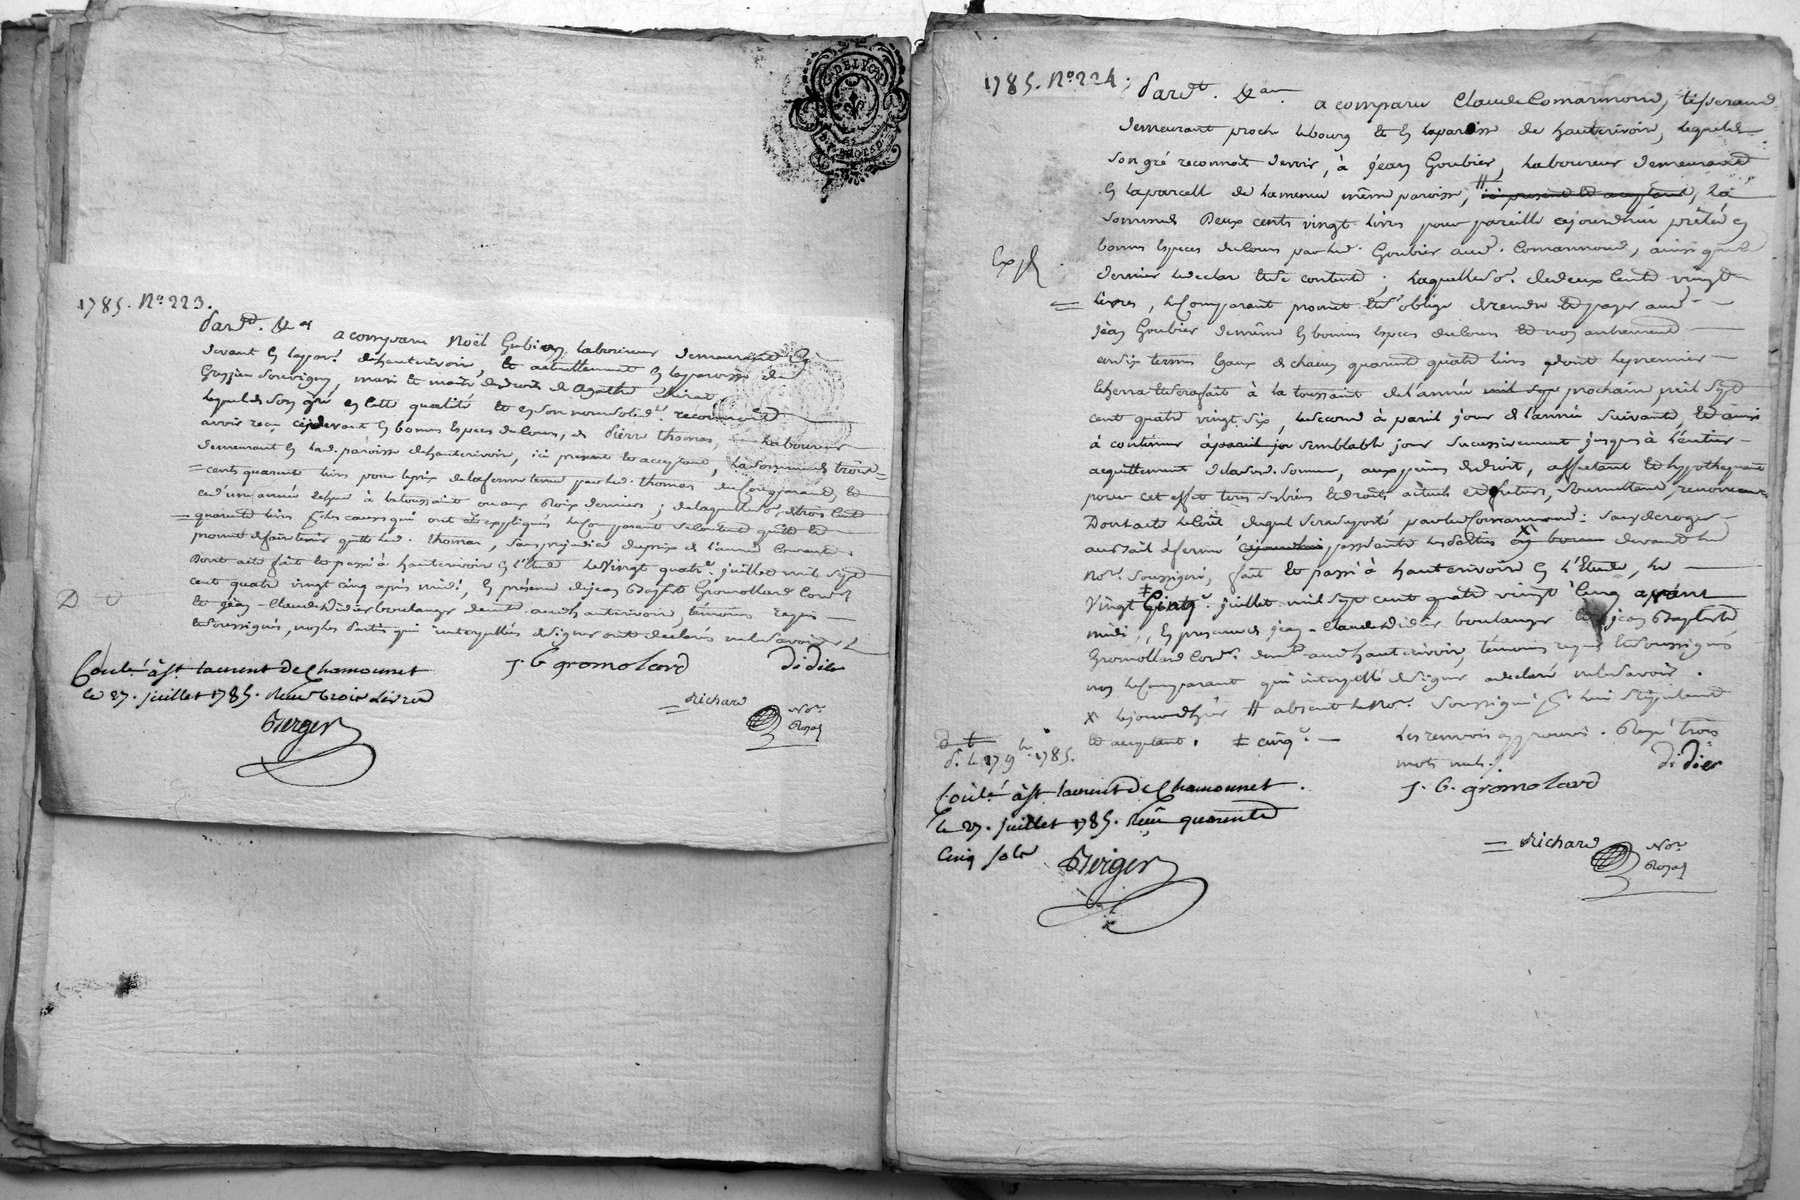 DE LYON
1785. N.º 223.
Pard.t &.a
a comparu Noël Gubien, laboureur demeurant
devant la parr. d'hauterivoir, et actuellement la parroisse de
Grezieu Souvigny, mari et maitre des droits de Agathe
lequel de son gré en cette qualité et en son nom solid.e reconnoit
avoir reçu cejdevant en bonnes especes du cours, de pierre thomas, laboureur
demeurant en lad. paroisse d'hauterivoir, ici present et acceptant, la somme de trois
cents quarente livres pour le prix de la ferme tenue par led. thomas du comparant, et
ce d'une année echue à la toussaint dernier; de laquelle so. de trois cent
quarente livres les causes qui ont été expliqués le comparant se contente quitte et
promet de faire tenir quitte led. thomas, sans prejudice du prix de l'année courante.
Dont acte fait et passé à hauterivoir en l'Etude le vingt quatre juillet mil sept
cent quatre vingt cinq après midi, en présence de jean Baptiste Gromollard cord.r
et jean-Claude Didier boulanger dem.t aud. hauterivoir, témoins requis
et soussignés, non les parties qui interpellées de signer ont déclarés ne le savoir
Contr.lé à St. laurent de Chamounet
le 27. juillet 1785. Reçu trois livres
Berger
J. B gromolard
didier
Richard
No.re
Royal
1785. N.º 224.
Pard.t &.a a comparu Claude Comarmond, tisserand
demeurant proche le bourg et en la paroisse de hauterivoir, lequel de
son gré reconnoit devoir, à jean Goubier, laboureur demeurant
en la parcelle de la menue même paroisse, # ici present et acceptant, la
somme de Deux cents vingt livres pour pareille cejourd'hui prêtée en
bonnes especes du cours par led. Goubier aud. Comarmond, ainsi que ce
dernier le declare et se contente; laquelle so. de deux cents vingt
Exp.
livres, le Comparant promet et s'oblige de rendre et payer aud.
jean Goubier de même en bonnes especes du cours et non autrement
en six termes égaux de chacun quarente quatre livres dont le premier
echerra et sera fait à la toussaint de l'année mil sept prochaine mil sept
cent quatre vingt six, le second à pareil jour de l'année suivante, et ainsi
à continuer à pareil jo semblable jour successivement jusques à l'entier
acquittement de lad. somme, aux peines de droit, affectant et hypothequant
pour cet effet tous ses biens et droits actuels et futurs, soumettant, renonceant
Dont acte le coût duquel sera suporté par led. Comarmond: sans deroger
au bail à ferme cejourdhui passé entre les parties X devant le
No.re soussigné, fait et passé à hauterivoir en l'Etude, le
vingt ‡ juillet mil sept cent quatre vingt cinq avant
midi, en presence de jean-Claude Didier boulanger et jean Baptiste
Gromollard cord.r dem.t aud. hauterivoir, témoins requis et soussignés
non le Comparant qui interpellé de signer a declaré ne le savoir.
X lejourdhuir # absent le No.re soussigné pour lui stipulant
et acceptant. ‡ cinq.e Les renvois approuvés. Rayé trois
mots nuls.
d. le 17 9.bre 1785.
Contr.lé à St. laurent de Chamounet.
le 27. juillet 1785. Reçu quarente
Cinq sols
Berger
J. B. gromolard
didier
Richard
No.re
Royal